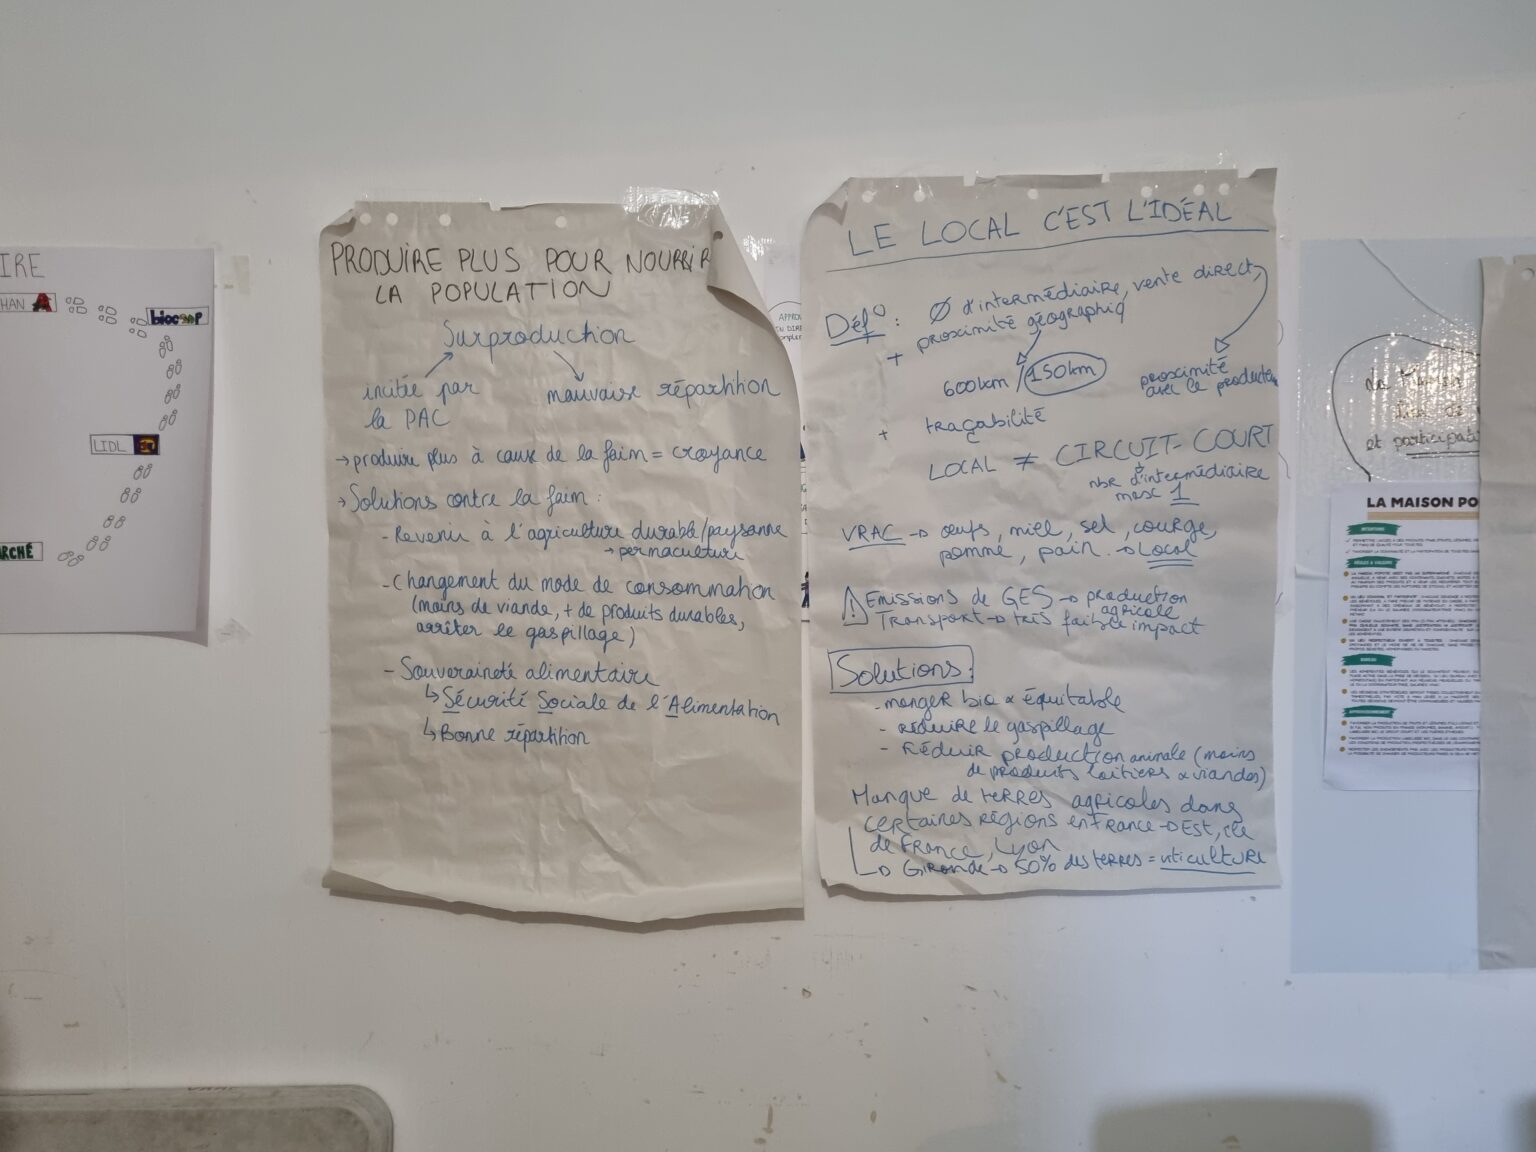 IRE
HAN
biocoop
LIDL
ARCHÉ
PRODUIRE PLUS POUR NOURRIR
LA POPULATION
Surproduction
incitée par
la PAC
mauvaise répartition
→ produire plus à cause de la faim = croyance
→ Solutions contre la faim :
- Revenir à l'agriculture durable/paysanne
→ permaculture
- Changement du mode de consommation
(moins de viande, + de produits durables,
arrêter le gaspillage)
- Souveraineté alimentaire
↳ Sécurité Sociale de l'Alimentation
↳ Bonne répartition
LE LOCAL C'EST L'IDÉAL
Déf° : Ø d'intermédiaire, vente direct,
+ proximité géographiq
600km / 150km
proximité
avec le producteur
+ traçabilité
LOCAL ≠ CIRCUIT-COURT
nbr d'intermédiaire
max 1
VRAC → œufs, miel, sel, courge,
pomme, pain. → Local
⚠ Emissions de GES → production
agricole
Transport → très faible impact
Solutions :
- manger bio & équitable
- réduire le gaspillage
- Réduir production animale (moins
de produits laitiers & viandes)
Manque de terres agricoles dans
certaines régions en France → Est, île
de France, Lyon
↳ Gironde → 50% des terres = viticulture
APPRO
et participati
LA MAISON PO